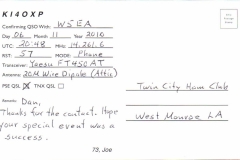 KI4OXP
Confirming QSO With: W5EA
Day: 06 Month: 11 Year: 2010
UTC: 20:48 MHz: 14.261.6
RST: 57 Mode: Phone
Transceiver: Yaesu FT450AT
Antenna: 20M Wire Dipole (Attic)
PSE QSL TNX QSL
Remarks: Dan,
Thanks for the contact. Hope
your special event was a
success.
73, Joe
Twin City Ham Club
West Monroe LA